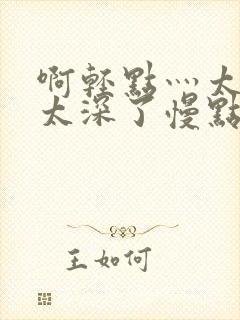 啊轻點灬太
太深了慢點
王如何